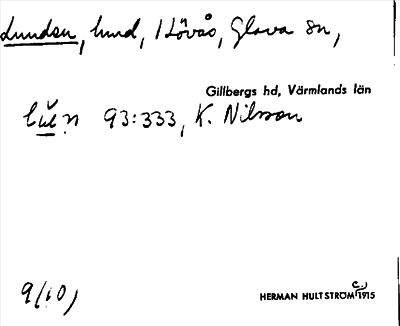 Lunden, lund, 1 Lövås, Glava sn,
Gillbergs hd, Värmlands län
93:333, K. Nilsson
9(10)
HERMAN HULTSTRÖM c. 1915